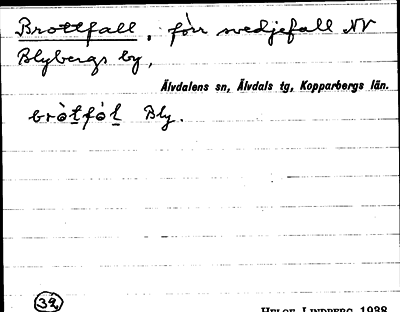 Brottfall, förr svedjefall NV
Blybergs by,
Älvdalens sn, Älvdals tg, Kopparbergs län.
bròtfól Bly.
32
HELGE LINDBERG 1938